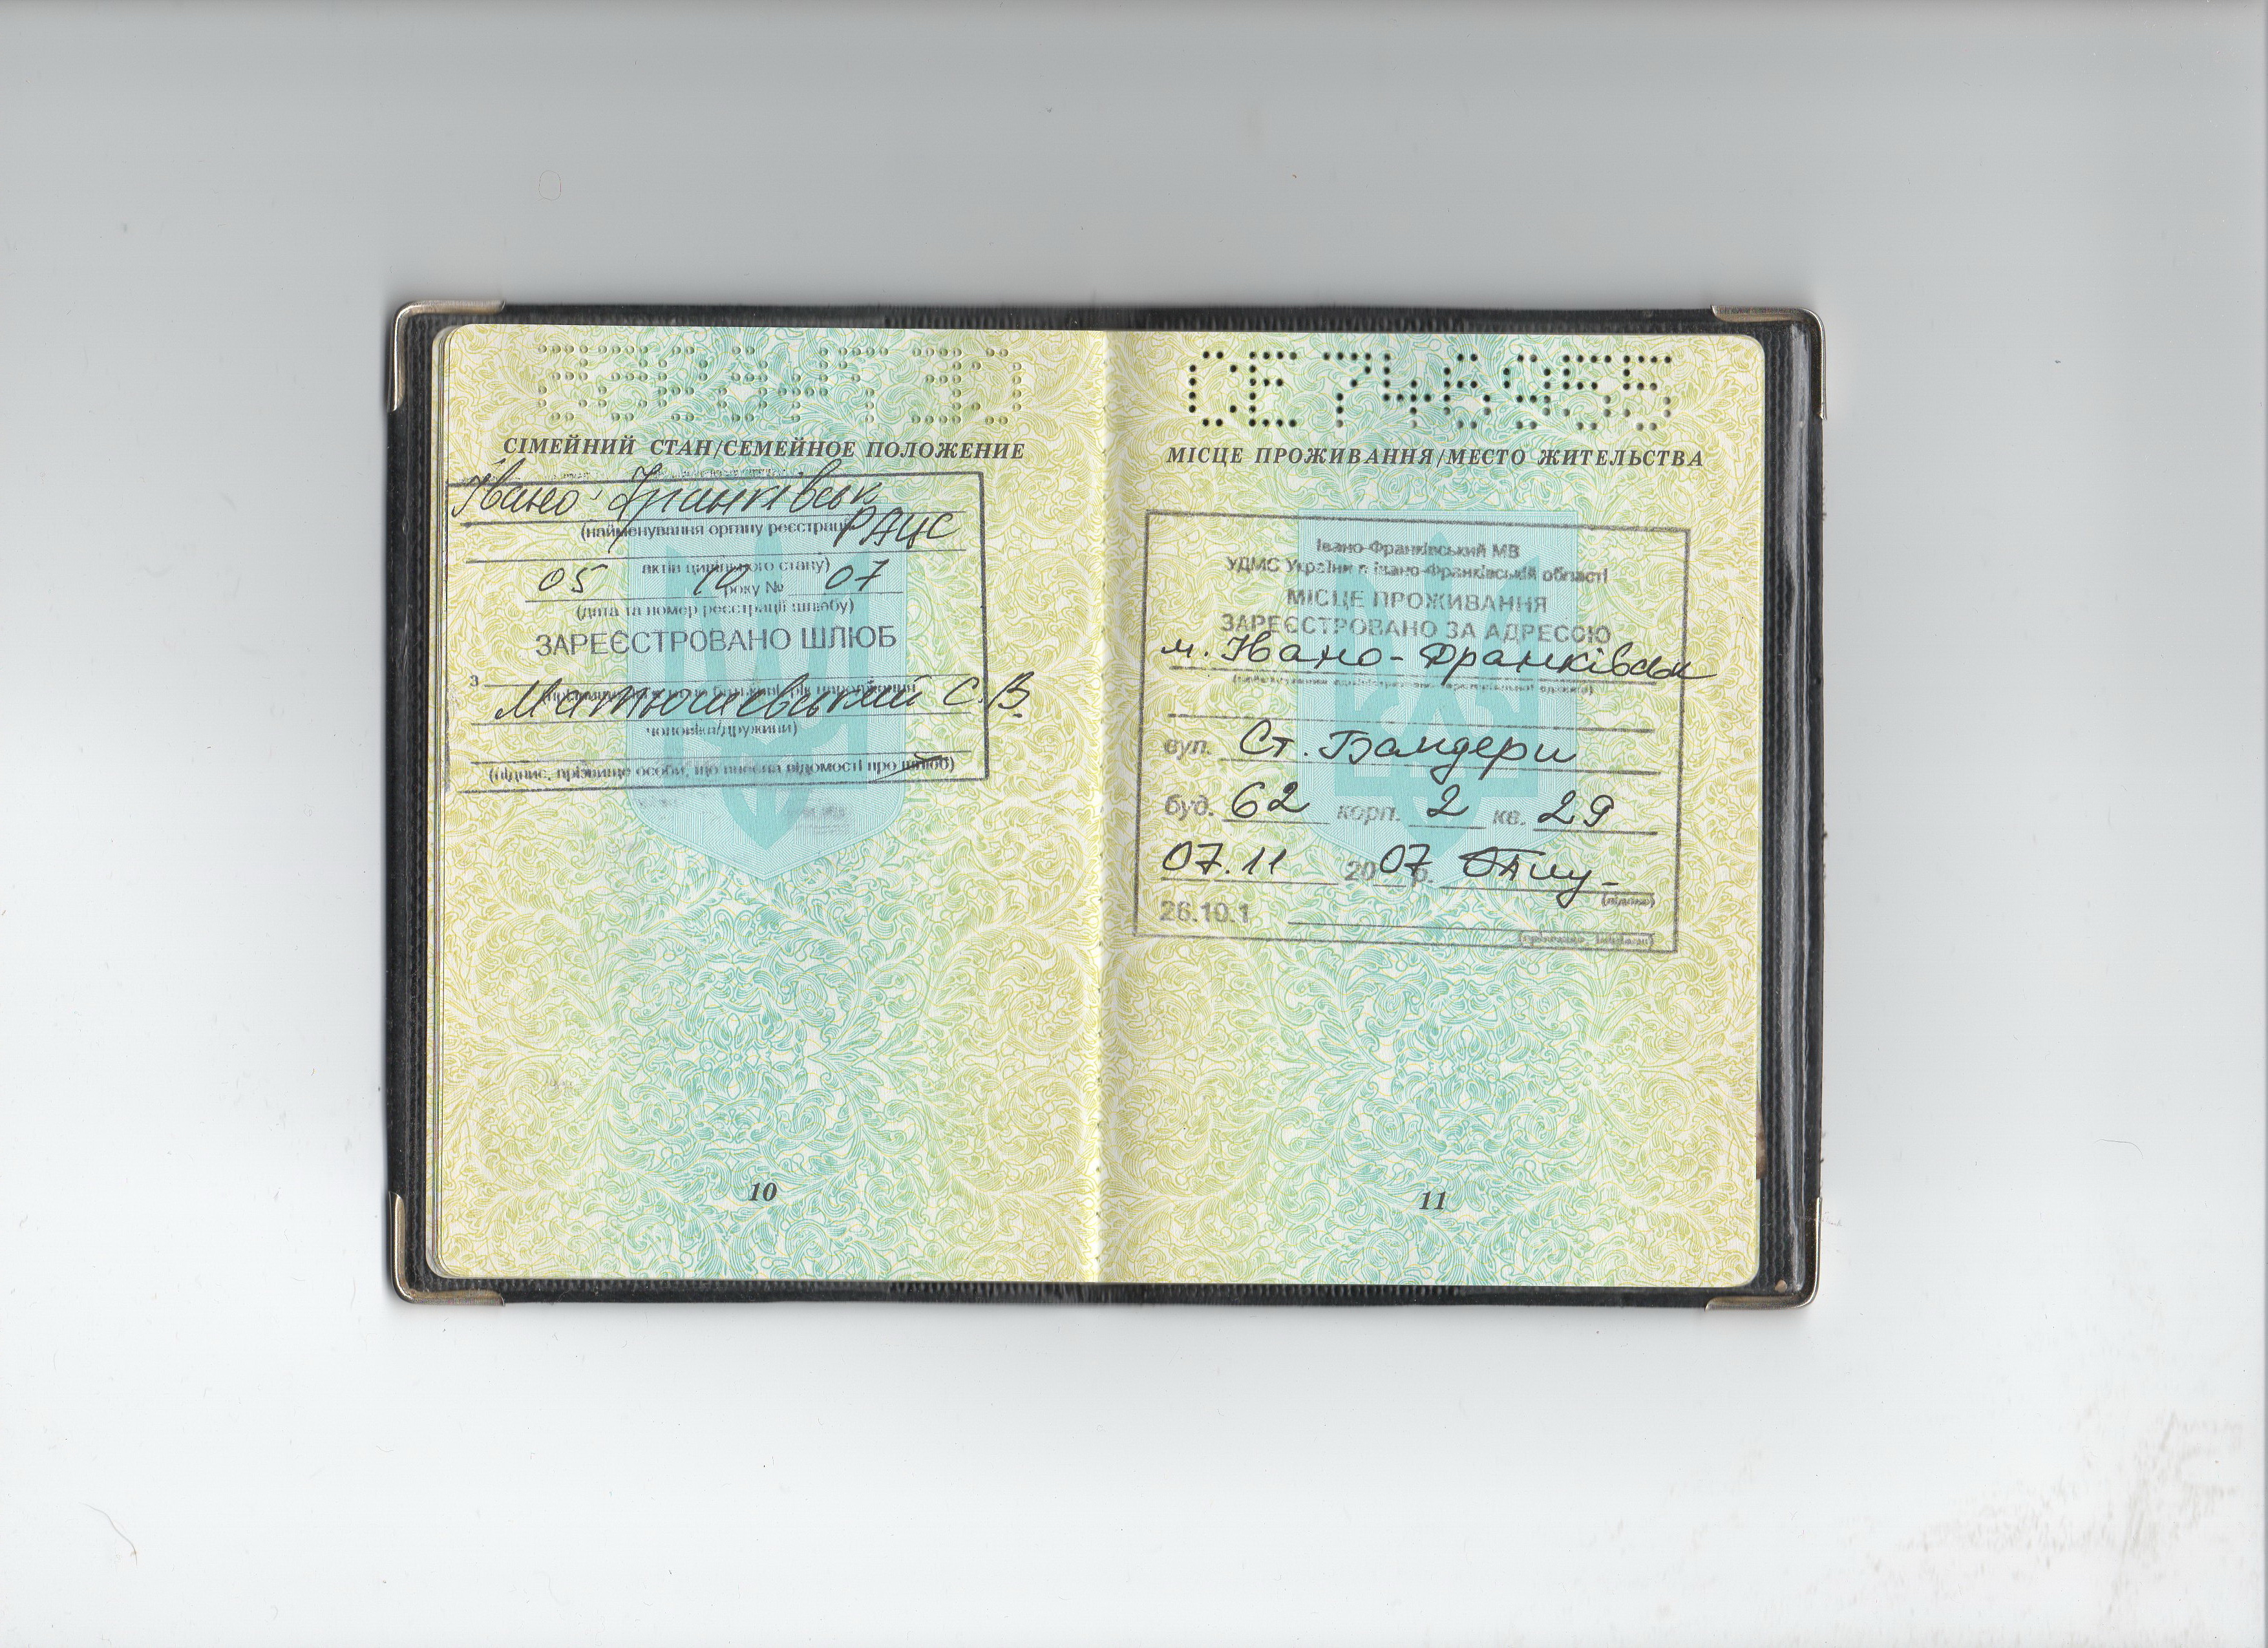 СІМЕЙНИЙ СТАН/СЕМЕЙНОЕ ПОЛОЖЕНИЕ
Івано-Франківськ
(найменування органу реєстрації
РАЦС
актів цивільного стану)
05 10 року № 07
(дата та номер реєстрації шлюбу)
ЗАРЕЄСТРОВАНО ШЛЮБ
з
Матюшевський С.В.
чоловіка/дружини)
(підпис, прізвище особи, що внесла відомості про шлюб)
10
СЕ 746955
МІСЦЕ ПРОЖИВАННЯ/МЕСТО ЖИТЕЛЬСТВА
Івано-Франківський МВ
УДМС України в Івано-Франківській області
МІСЦЕ ПРОЖИВАННЯ
ЗАРЕЄСТРОВАНО ЗА АДРЕСОЮ
м. Івано-Франківськ
вул. Ст. Бандери
буд. 62 корп. 2 кв. 29
07.11 2007 р.
(підпис)
26.10.1
11